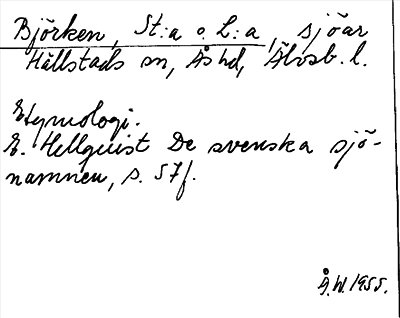 Björken, St:a o. L:a, sjöar
Hällstads sn, Ås hd, Älvsb. l.
Etymologi.
E. Hellquist De svenska sjö-
namnen, s. 57f.
Å.W. 1955.